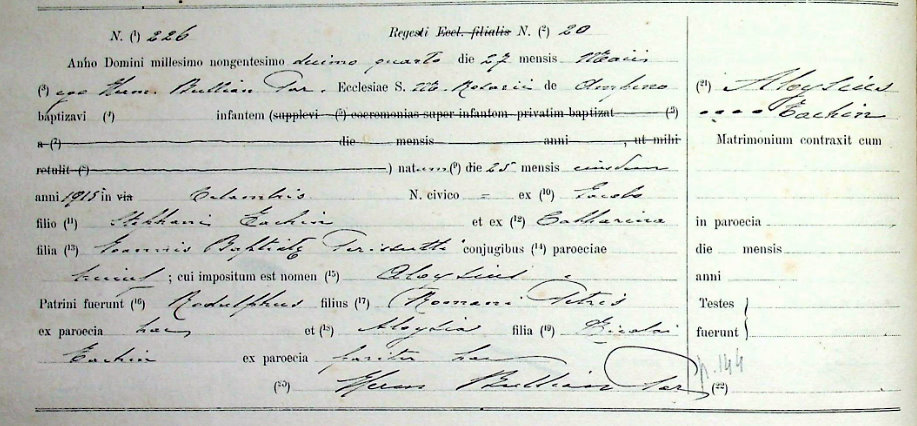 N. (¹) 226 Regesti Eccl. filialis N. (²) 20
Anno Domini millesimo nongentesimo decimo quarto die 27 mensis Maii
(³) ego Hum. Bullian Par. Ecclesiae S. M. Rosarii de
baptizavi (⁴) infantem (supplevi (⁵) caeremonias super infantem privatim baptizat (⁶)
a (⁷) die mensis anni , ut mihi
retulit (⁸) ) natum (⁹) die 25 mensis eiusdem
anni 191 in via N. civico = ex (¹⁰) Jacobo
filio (¹¹) Stephani Cachin et ex (¹²) Catharina
filia (¹³) Joannis Baptistę conjugibus (¹⁴) paroeciae
huius ; cui impositum est nomen (¹⁵) Aloysius
Patrini fuerunt (¹⁶) Rodulphus filius (¹⁷) Romani Petris
ex paroecia hac et (¹⁸) Aloysia filia (¹⁹) Nicolai
Cachin ex paroecia pariter hac
(²⁰) Hum Bullian Par
(²¹) Aloysius
Cachin
Matrimonium contraxit cum
in paroecia
die mensis
anni
Testes
fuerunt
p. 144
(²²)